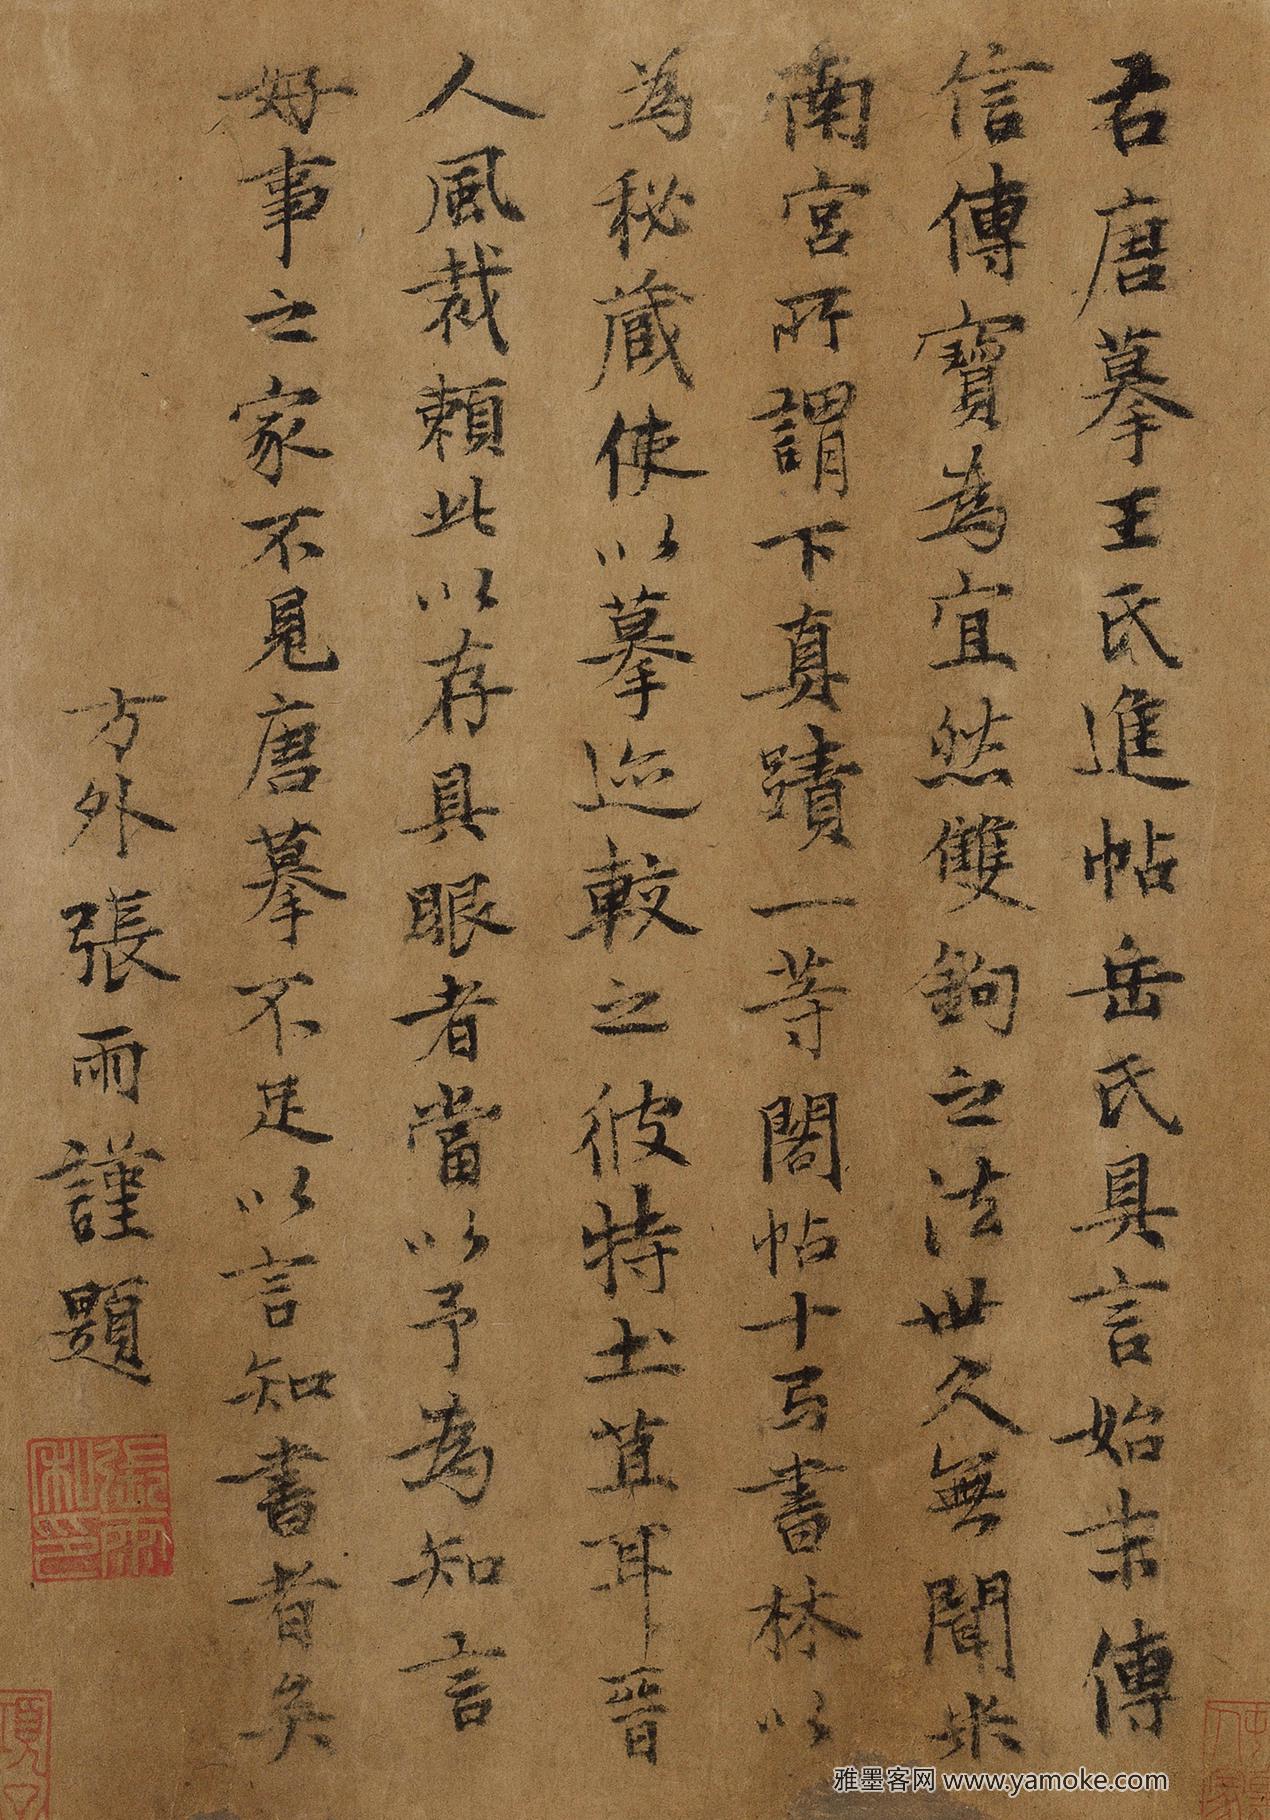 君唐摹王氏進帖岳氏具言始末傳
信傳寶為宜然雙鉤之法世久無聞米
南宮所謂下真蹟一等閣帖十弓書林以
為秘蔵使以摹迹較之彼特土苴耳晉
人風裁賴此以存具眼者當以予為知言
好事之家不見唐摹不足以言知書者矣
方外張雨謹題
張雨私印
雅墨客网 www.yamoke.com